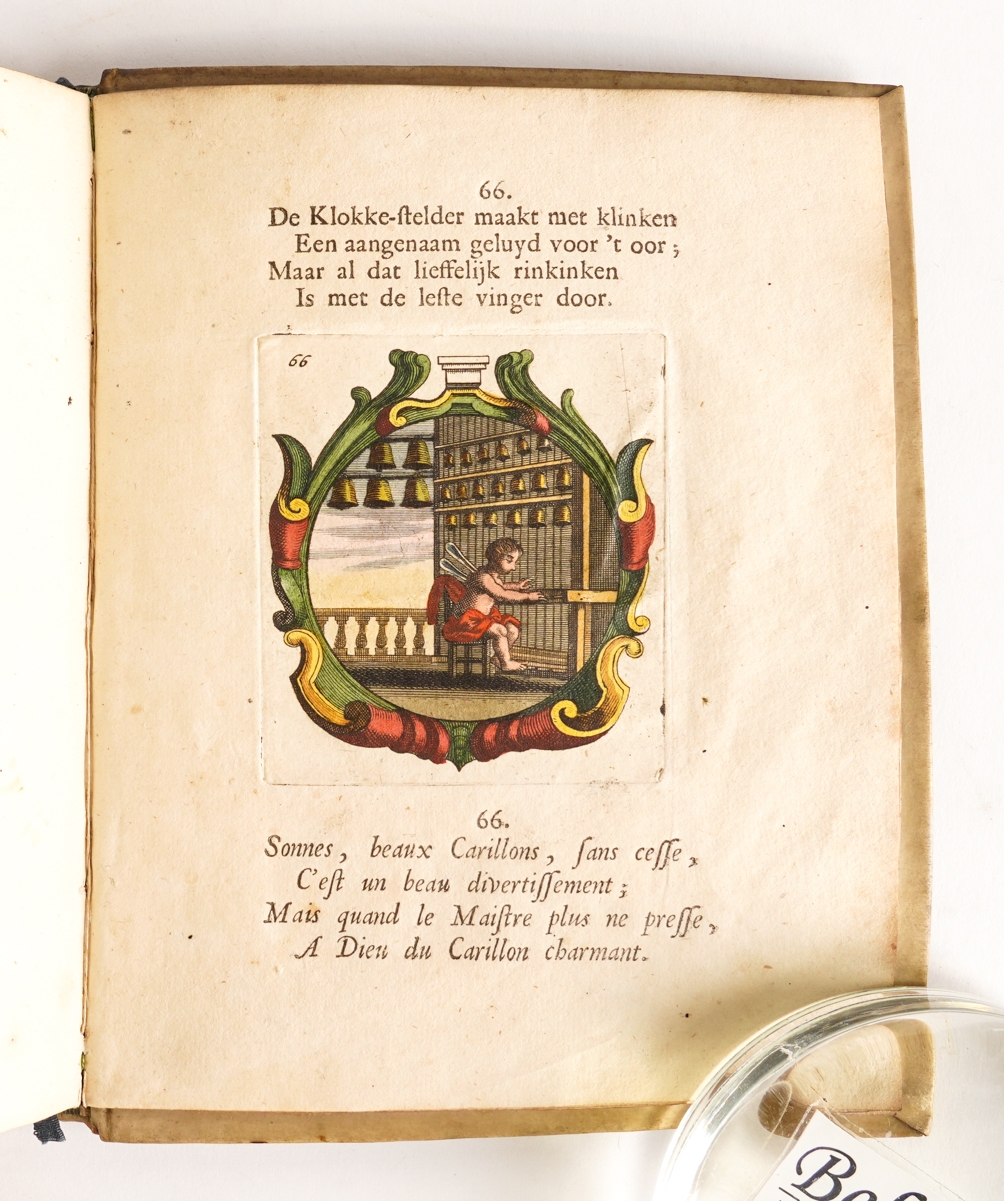 66.
De Klokke-ſtelder maakt met klinken
Een aangenaam geluyd voor 't oor;
Maar al dat lieffelijk rinkinken
Is met de leſte vinger door.
66
66.
Sonnes, beaux Carillons, ſans ceſſe,
C'eſt un beau divertiſſement;
Mais quand le Maiſtre plus ne preſſe,
A Dieu du Carillon charmant.